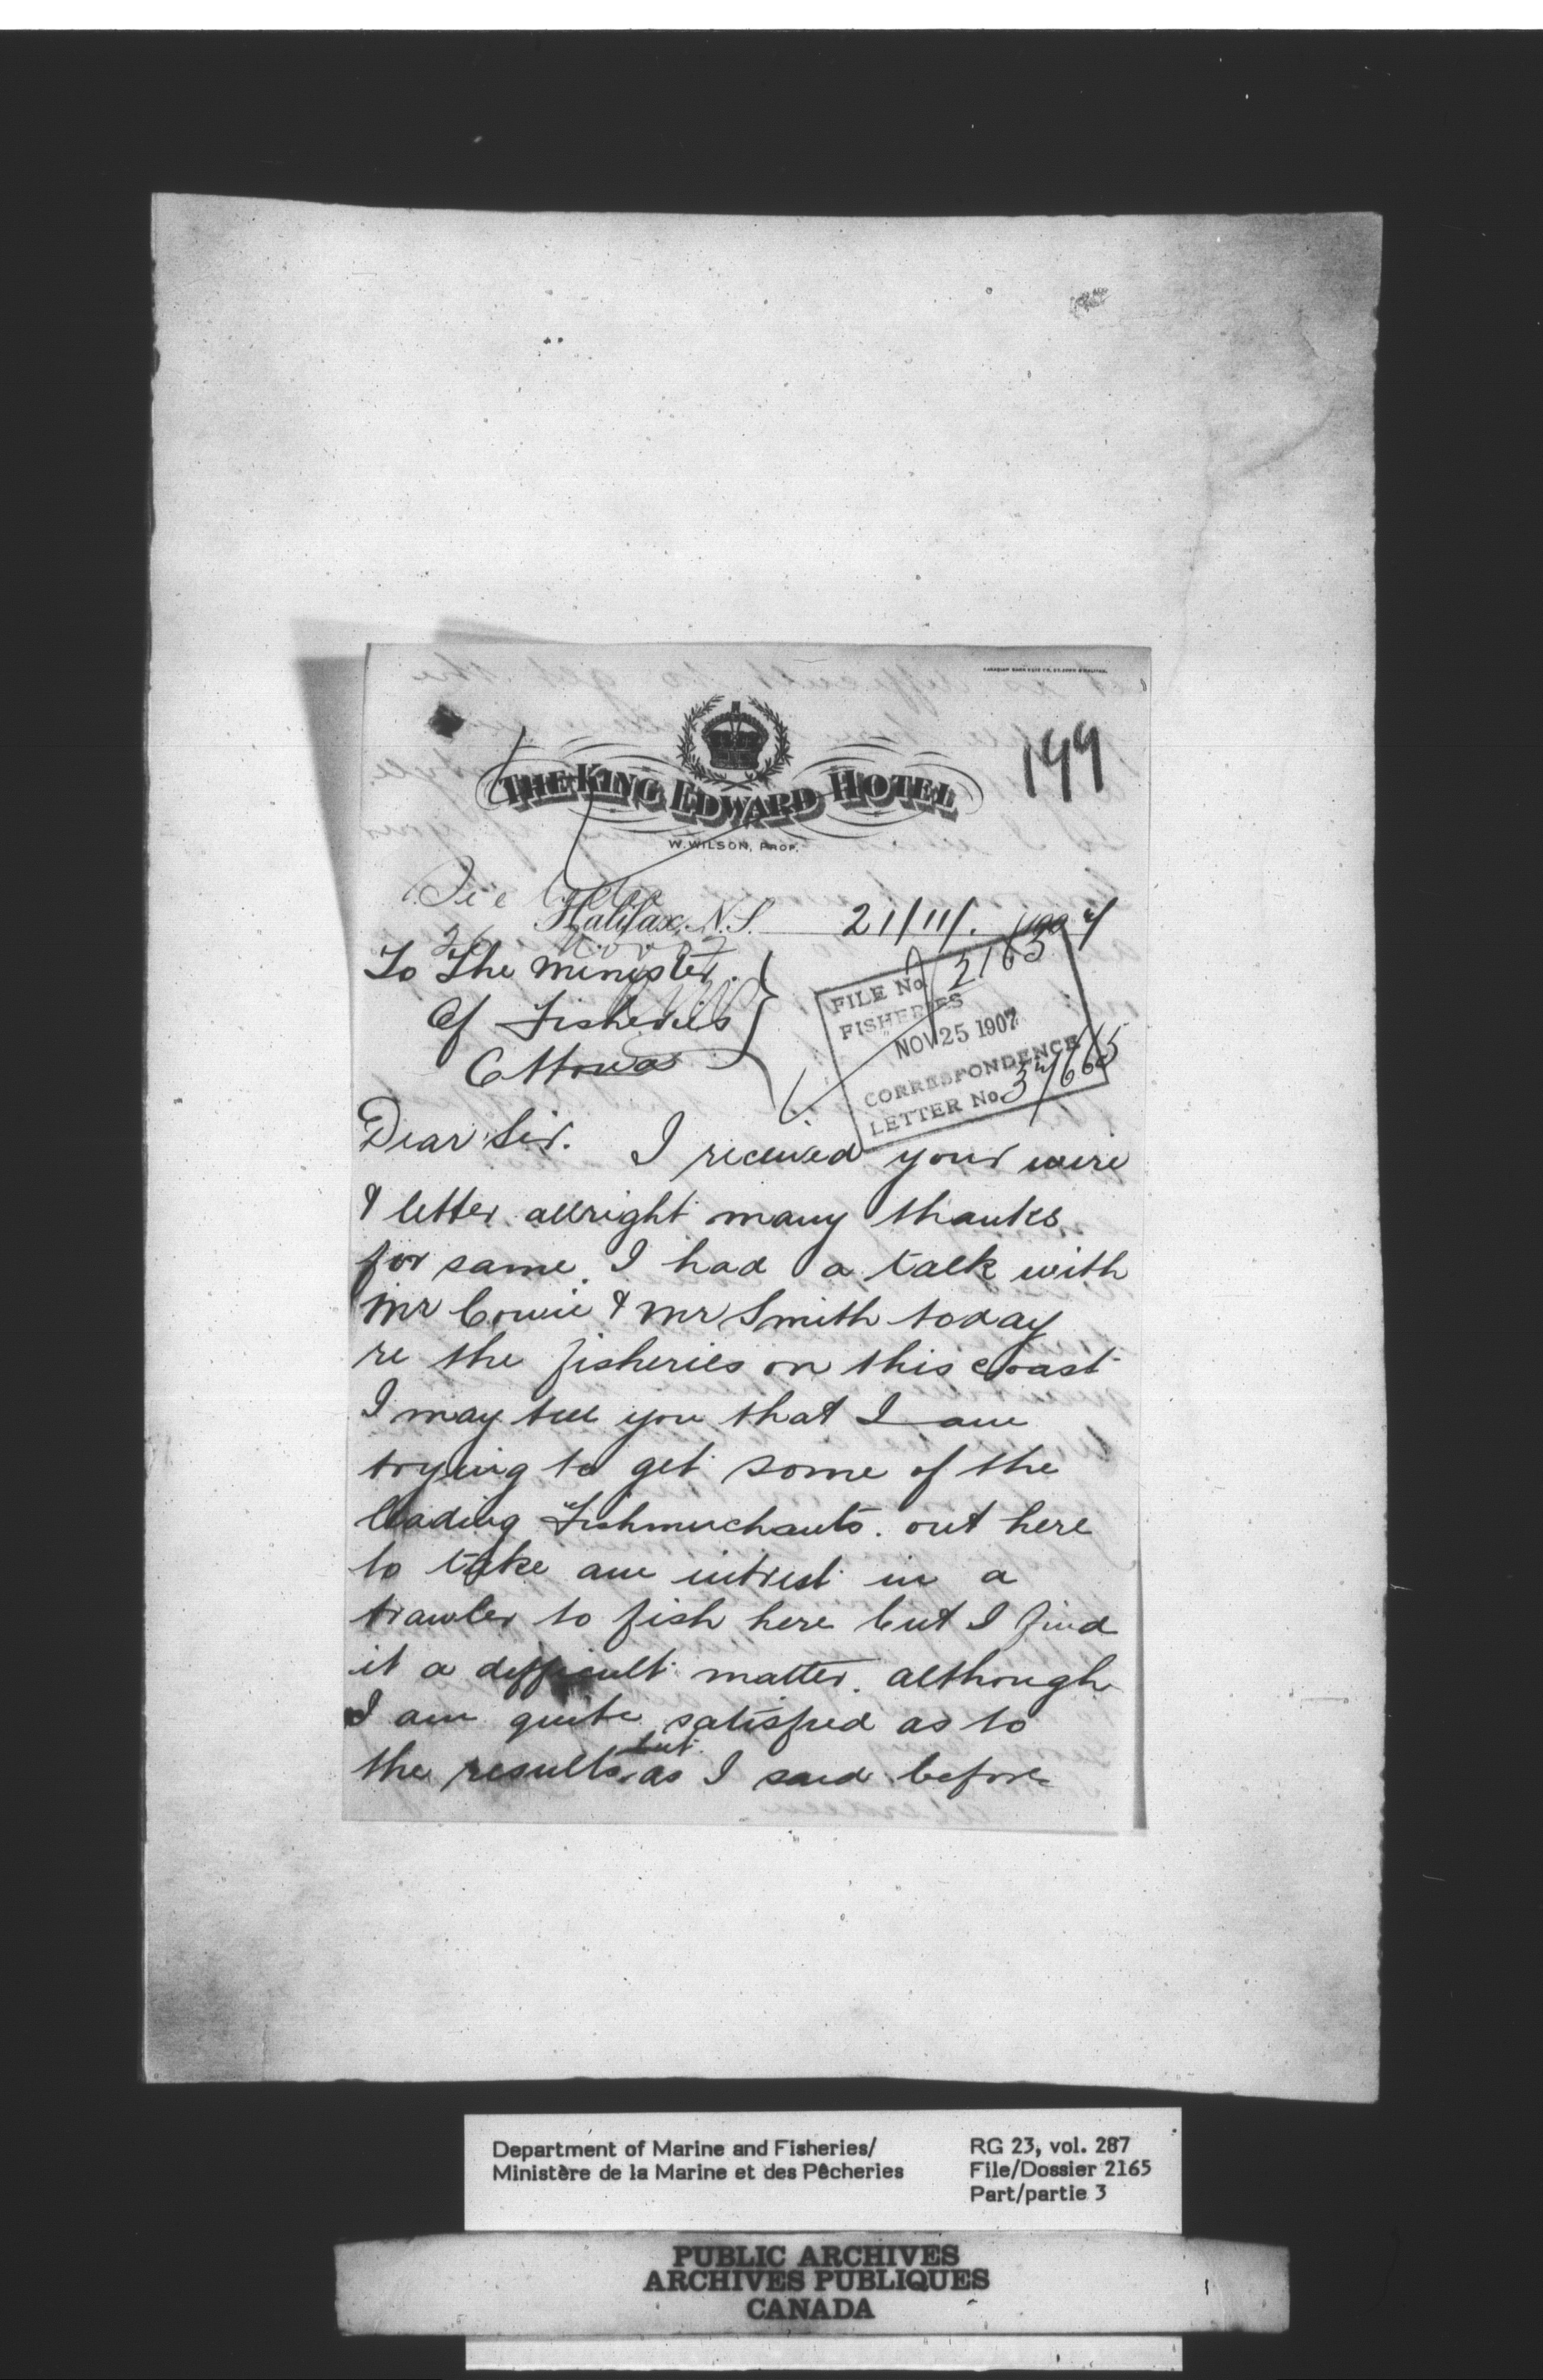 199
THE KING EDWARD HOTEL
W. WILSON, PROP.
Halifax, N.S. 21/11/. 1907
To The Minister
Of Fisheries
Ottowa
FILE No. 2165
FISHERIES
NOV 25 1907
CORRESPONDENCE
LETTER No.
Dear Sir. I received your wire
& letter allright many thanks
for same. I had a talk with
Mr Cowie & Mr Smith today
re the fisheries on this coast
I may tell you that I am
trying to get some of the
leading Fishmerchants. out here
to take an intrest in a
trawler to fish here but I find
it a difficult matter. although
I am quite satisfied as to
the results but as I said before
Department of Marine and Fisheries/
Ministère de la Marine et des Pêcheries
RG 23, vol. 287
File/Dossier 2165
Part/partie 3
PUBLIC ARCHIVES
ARCHIVES PUBLIQUES
CANADA